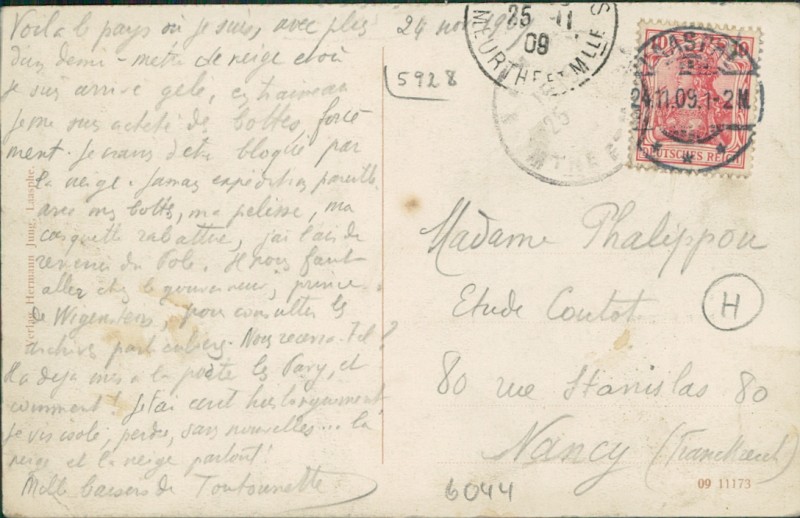 Voilà le pays où je suis, avec plus
d'un demi-mètre de neige et où
je suis arrivé gelé, en traineau
je me suis acheté des bottes, forcé-
ment. Je crains d'être bloqué par
la neige. Jamais expédition pareille
avec mes bottes, ma pelisse, ma
casquette rabattue, j'ai l'air de
revenir du Pole. Il nous faut
aller chez le gouverneur, prince
de Wigenstein, pour consulter les
archives particulières. Nous recevra-t-il?
Il a déjà mis à la porte les Pary, et
comment! Je t'ai écrit hier longuement
je vis isolé, perdu, sans nouvelles... la
neige et la neige partout!
Mille baisers de Toutounette
24 nov 1909
5928
25 - 11
09
MEURTHE ET MLLE
25
LAASPHE
24.11.09.1-2N.
10
DEUTSCHES REICH
Madame Phalippou
Etude Coutot
H
80 rue Stanislas 80
Nancy (Frankreich)
09 11173
6044
Verlag Hermann Jung, Laasphe.